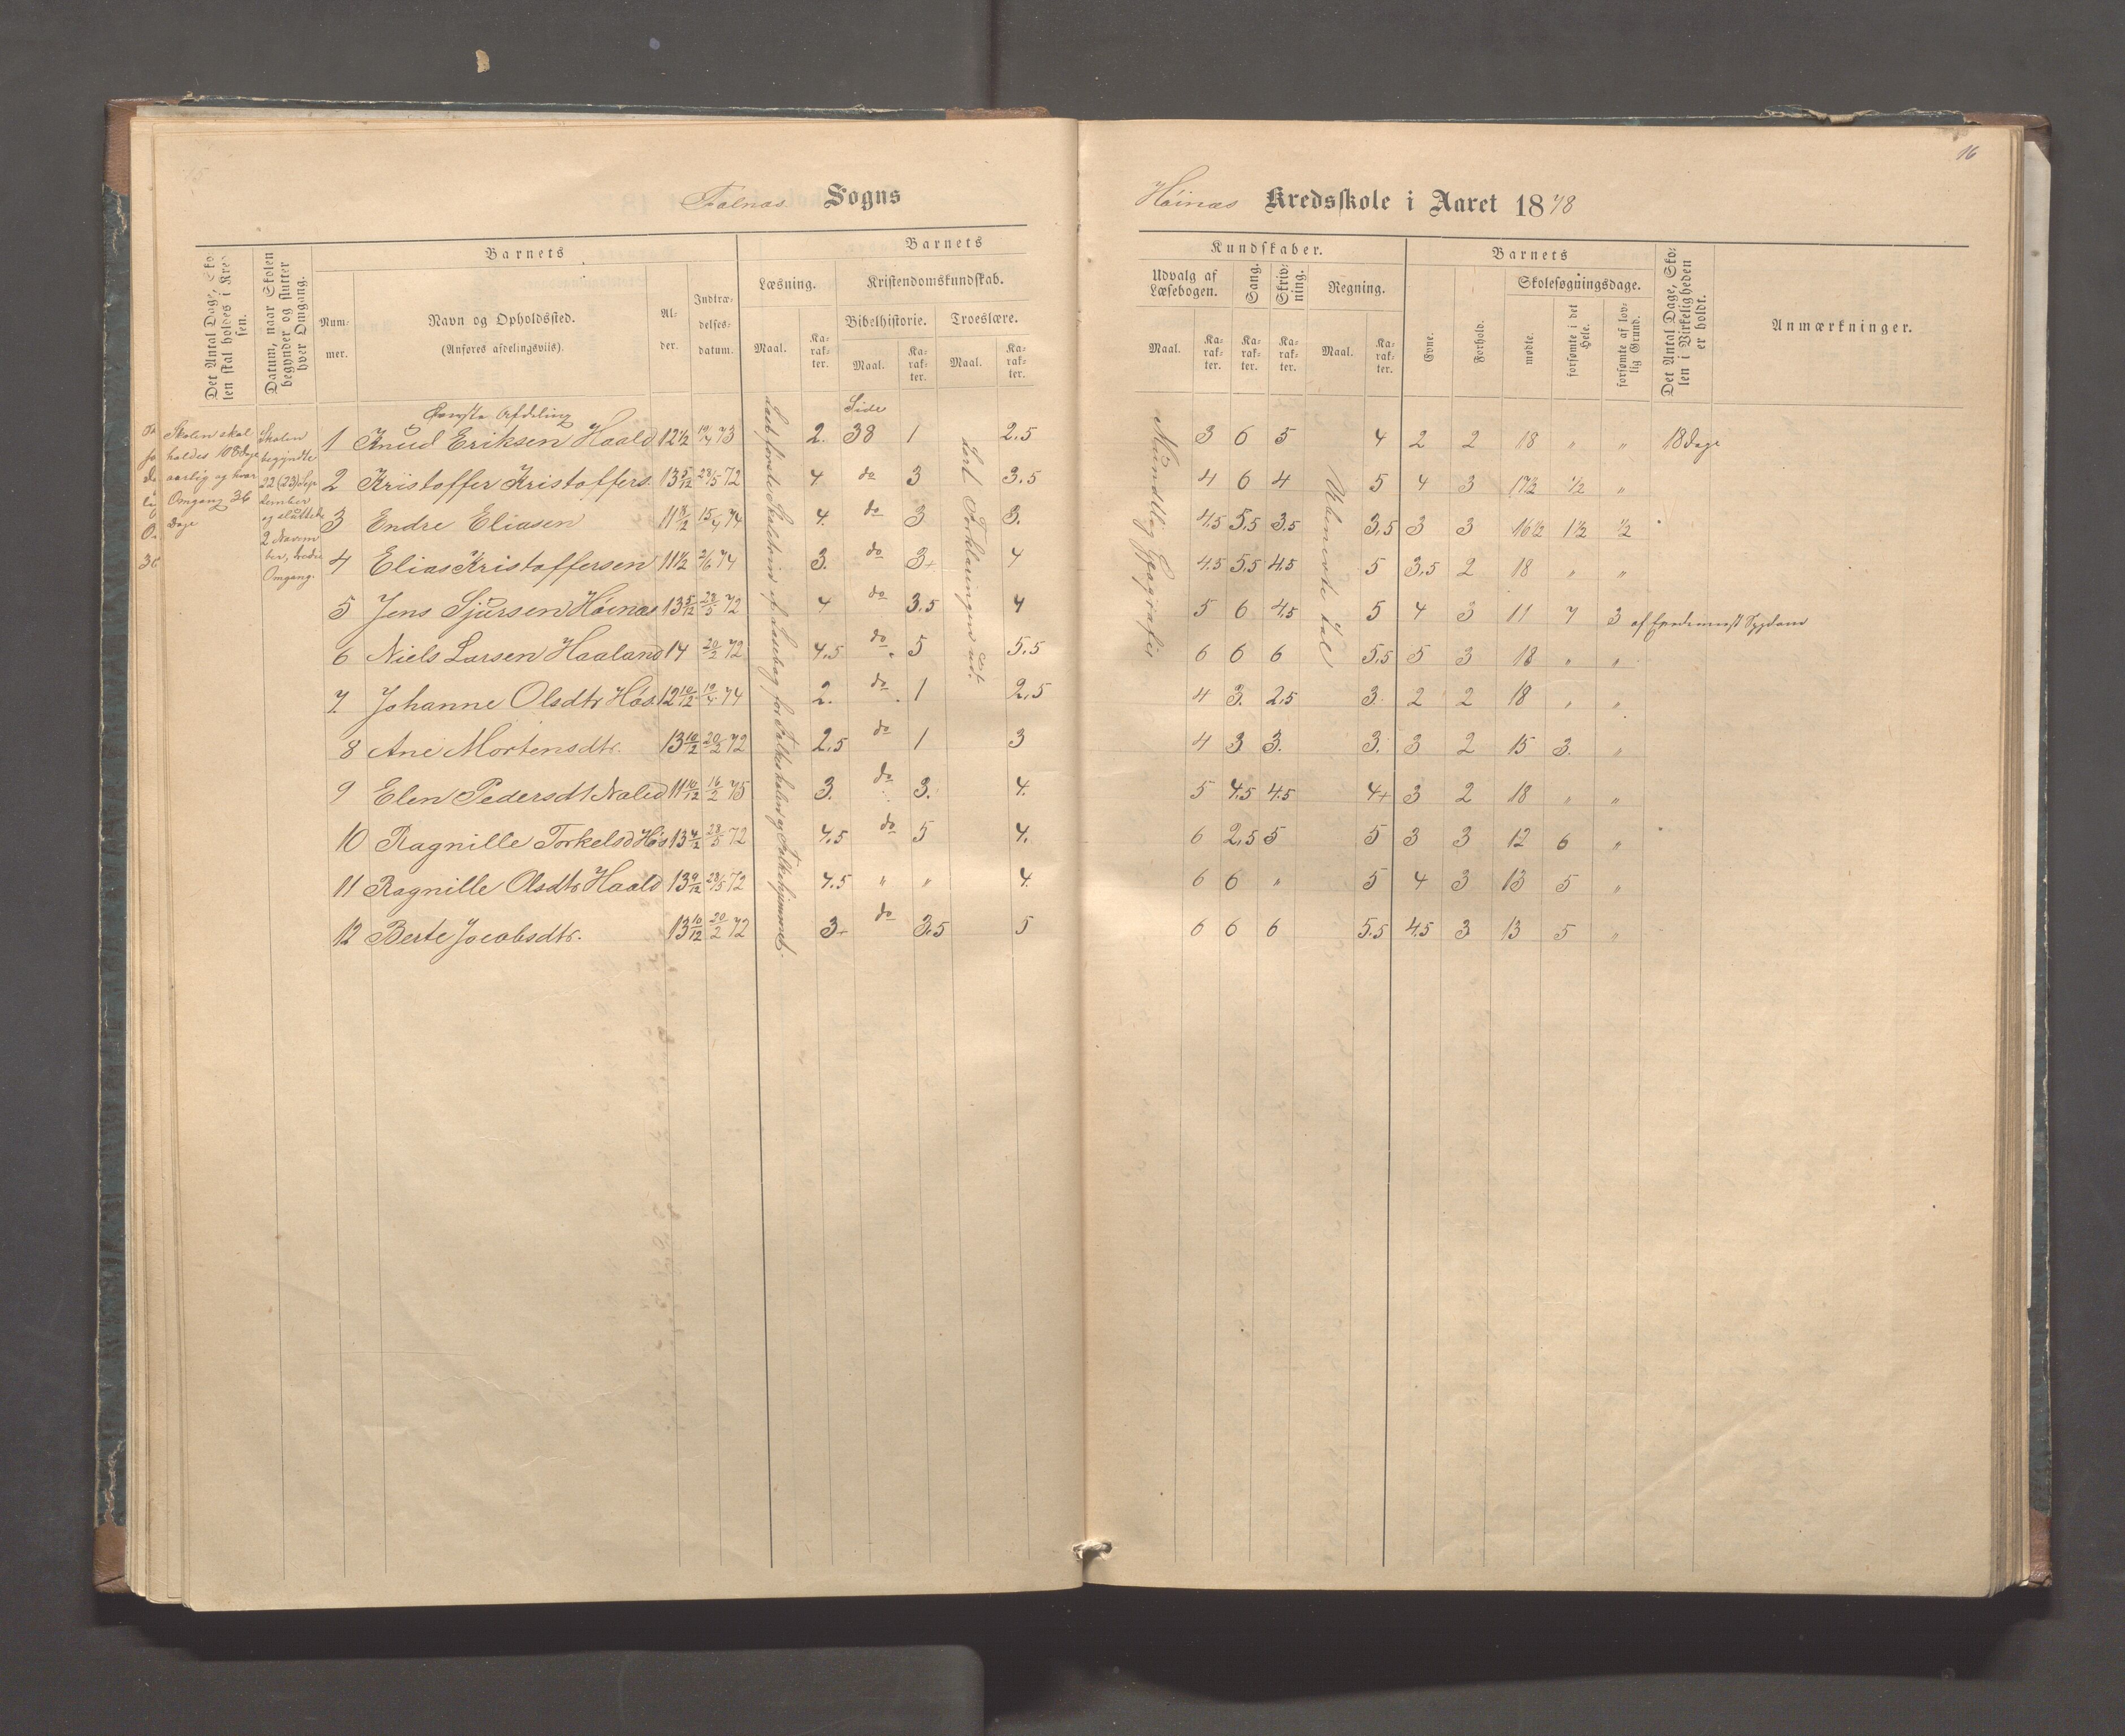 16
Falnæs Sogns
Høinæs Kredsskole i Aaret 1878
Det Antal Dage, Skolen skal holdes i Kredsen.
Datum, naar Skolen begynder og slutter hver Omgang.
Barnets
Nummer.
Navn og Opholdssted.
(Anføres afdelingsviis).
Alder.
Indtrædelsesdatum.
Barnets
Læsning.
Kristendomskundskab.
Bibelhistorie.
Troeslære.
Maal.
Karakter.
Maal.
Karakter.
Maal.
Karakter.
Kundskaber.
Udvalg af Læsebogen.
Sang.
Skrivning.
Regning.
Maal.
Karakter.
Karakter.
Karakter.
Maal.
Karakter.
Barnets
Evne.
Forhold.
Skolesøgningsdage.
mødte.
forsømte i det Hele.
forsømte af lovlig Grund.
Det Antal Dage, Skolen i Virkeligheden er holdt.
Anmærkninger.
Skolen skal
holdes 108 Dage
aarlig og hver
Omgang 36
Dage
Skolen
begyndte
22 (23) Sep
tember
og sluttede
2 Novem
ber,
Omgang.
Øverste Afdeling
Side
1 Knud Eriksen Haald 12 1/2 19/4 73 2. 38 1 2.5 3 6 5 4 2 2 18 " " 18 dage
2 Kristoffer Kristoffers. 13 5/12 28/5 72 4 do 3 3.5 4 6 4 5 4 3 17 1/2 1/2 "
3 Endre Eliasen 11 8/12 15/4 74 4. do 3 3. 4.5 5.5 3.5 3.5 3 3 16 1/2 1 1/2 1/2
4 Elias Kristoffersen 11 1/2 2/6 74 3. do 3+ 4 4.5 5.5 4.5 5 3.5 2 18 " "
5 Jens Sjursen Høinæs 13 5/12 28/5 72 4 do 3.5 4 5 6 4.5 5 4 3 11 7 3 af Epidemisk Sygdom
6 Niels Larsen Haaland 14 20/2 72 4.5 do 5 5.5 6 6 6 5.5 5 3 18 " "
7. Johanne Olsdtr Høs. 12 10/12 19/4 74 2. do 1 2.5 4 3. 2.5 3. 2 2 18 " "
8 Ane Mortensdtr. 13 10/12 20/2 72 2.5 do 1 3 4 3 3. 3. 3 2 15 3. "
9 Elen Pedersdt Naled 11 10/12 16/2 75 3. do 3. 4. 5 4.5 4.5 4+ 3 2 18 " "
10 Ragnille Torkelsd Høs 13 4/12 28/5 72 4.5 do 5 4. 6 2.5 5 5 3 3 12 6 "
11 Ragnille Olsdtr Haald 13 9/12 28/5 72 4.5 " " 4. 6 6 " 5 4 3 13 5 "
12 Berte Jacobsdtr. 13 10/12 20/2 72 3+ do 3.5 5 6 6 6 5.5 4.5 3 13 5 "
Læst første Skoletrin af Læsebog for Folkeskolen og Folkehjemmet.
Lært Forklaringen ud.
Mundtlig Geografi
Ubenævnte Tal